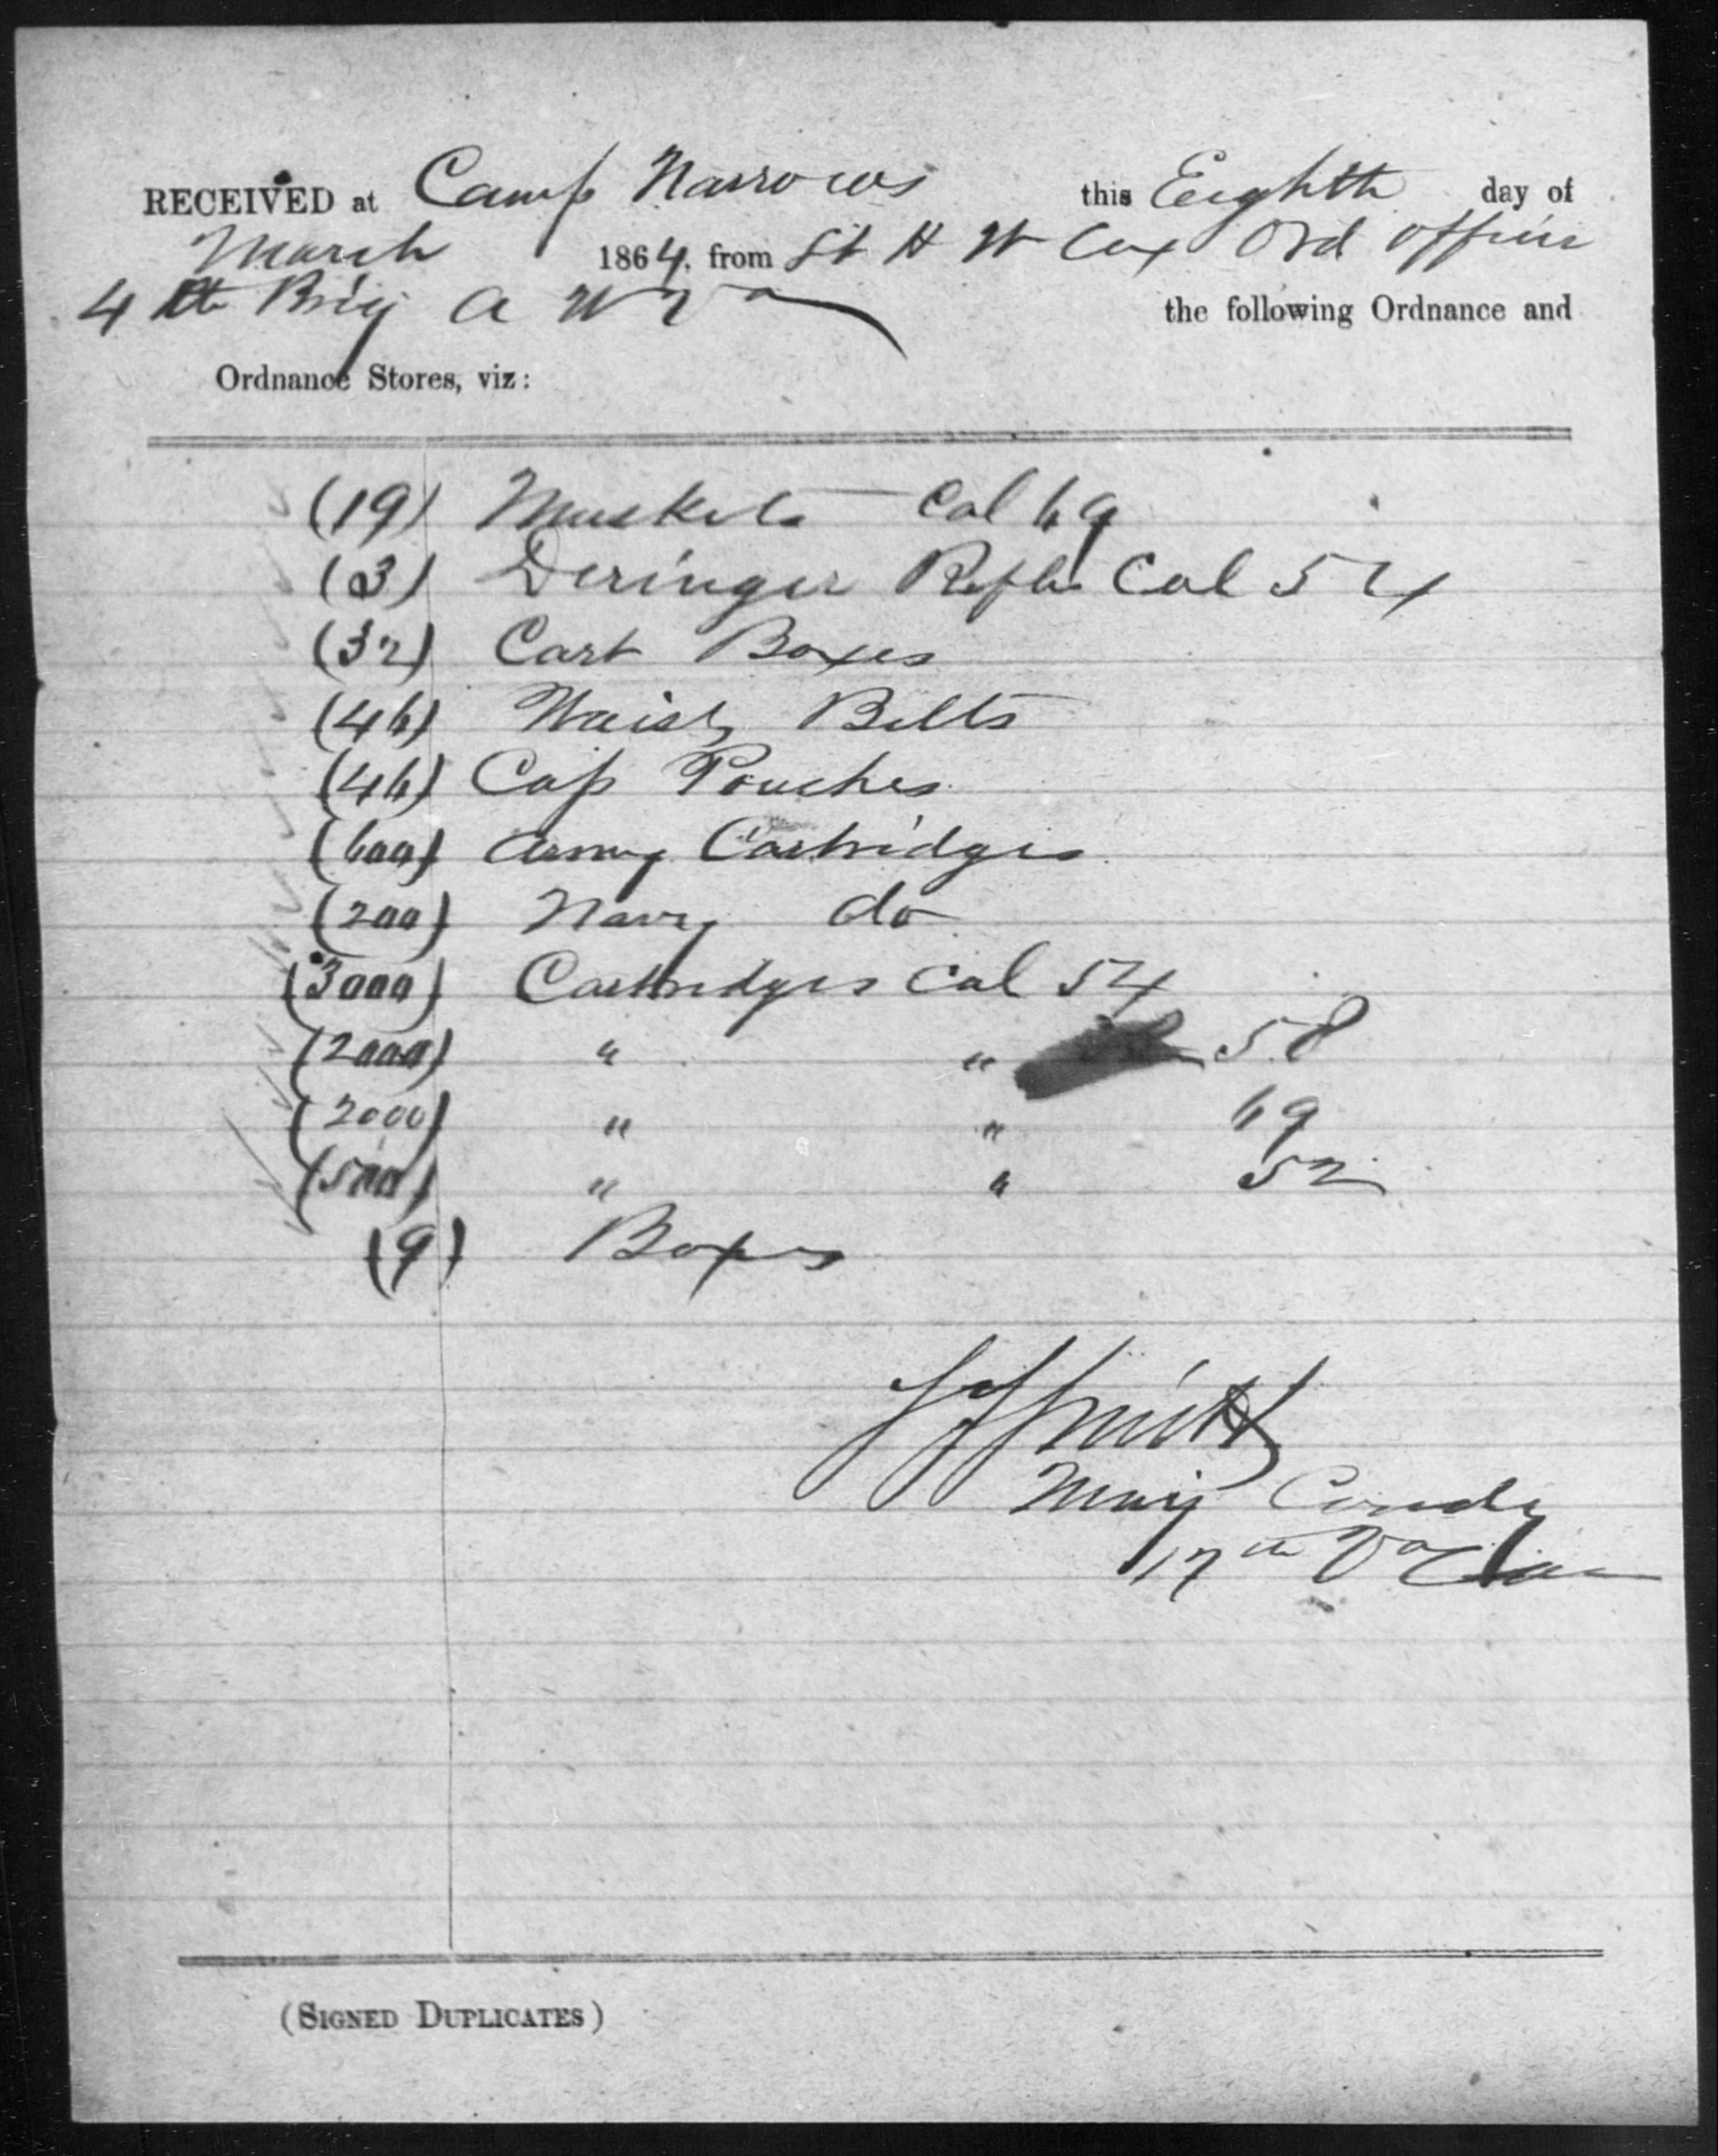 RECEIVED at Camp Narrows this Eighth day of
March 1864, from Lt H W Cox Ord Officer
4th Brig A W Va the following Ordnance and
Ordnance Stores, viz:
(19) Muskets Cal 69
(3) Deringer Rifles Cal 54
(32) Cart Boxes
(46) Waist Belts
(46) Cap Pouches
(600) Army Cartridges
(200) Navy do
(3000) Cartridges Cal 54
(2000) " " 58
(2000) " " 69
(500) " " 52
(9) Boxes
Smith
Maj Comdg
17th Va Cav
(SIGNED DUPLICATES)